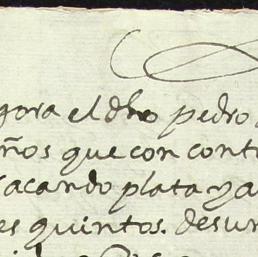 gora el dho pedro
ños que con cont
sacando plata y a
es quintos. desu